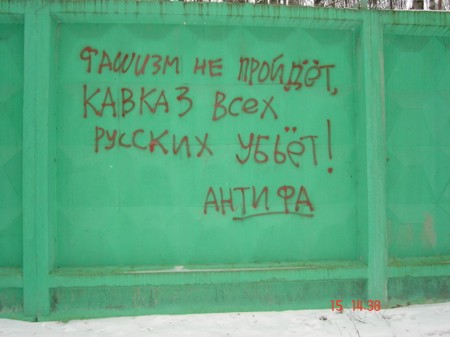 ФАШИЗМ НЕ ПРОЙДЁТ,
КАВКАЗ ВСЕХ
РУССКИХ УБЬЁТ!
АНТИФА
15 14:38